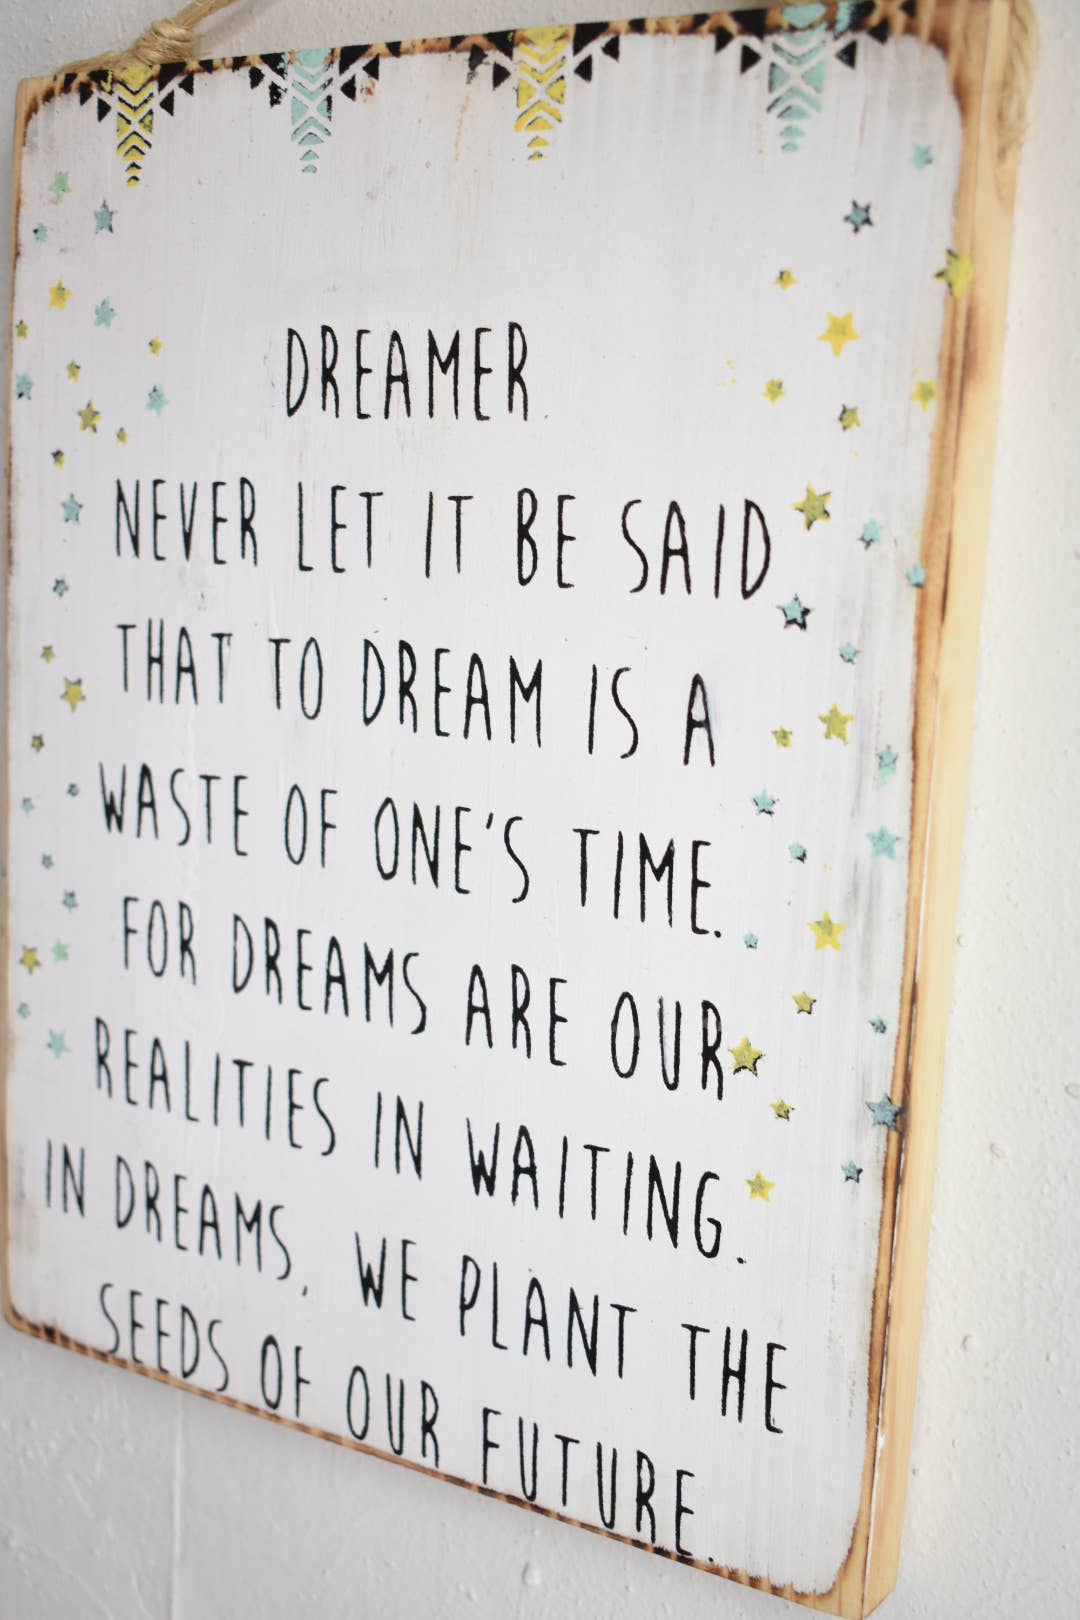 DREAMER.
NEVER LET IT BE SAID
THAT TO DREAM IS A
WASTE OF ONE'S TIME.
FOR DREAMS ARE OUR
REALITIES IN WAITING.
IN DREAMS, WE PLANT THE
SEEDS OF OUR FUTURE.